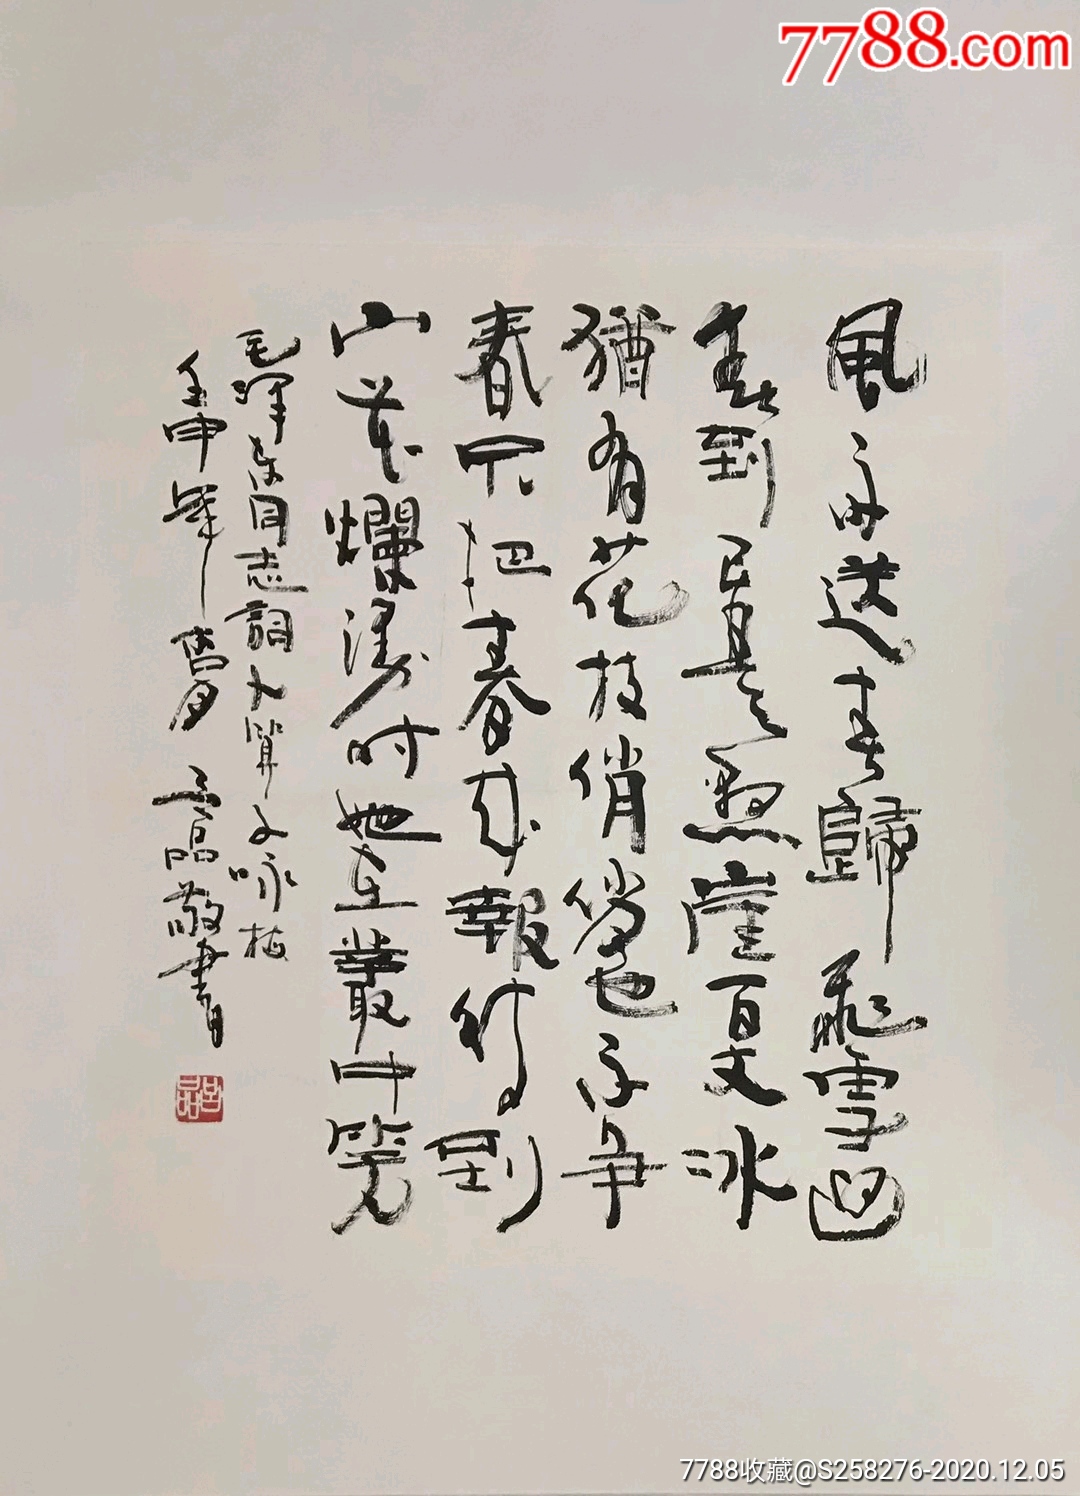 7788.com
風雨送春歸飛雪迎
春到已是懸崖百丈冰
猶有花枝俏俏也不爭
春只把春來報待到
山花爛漫時她在叢中笑
毛澤東同志詞卜算子咏梅
壬申
敬書
7788收藏@S258276-2020.12.05